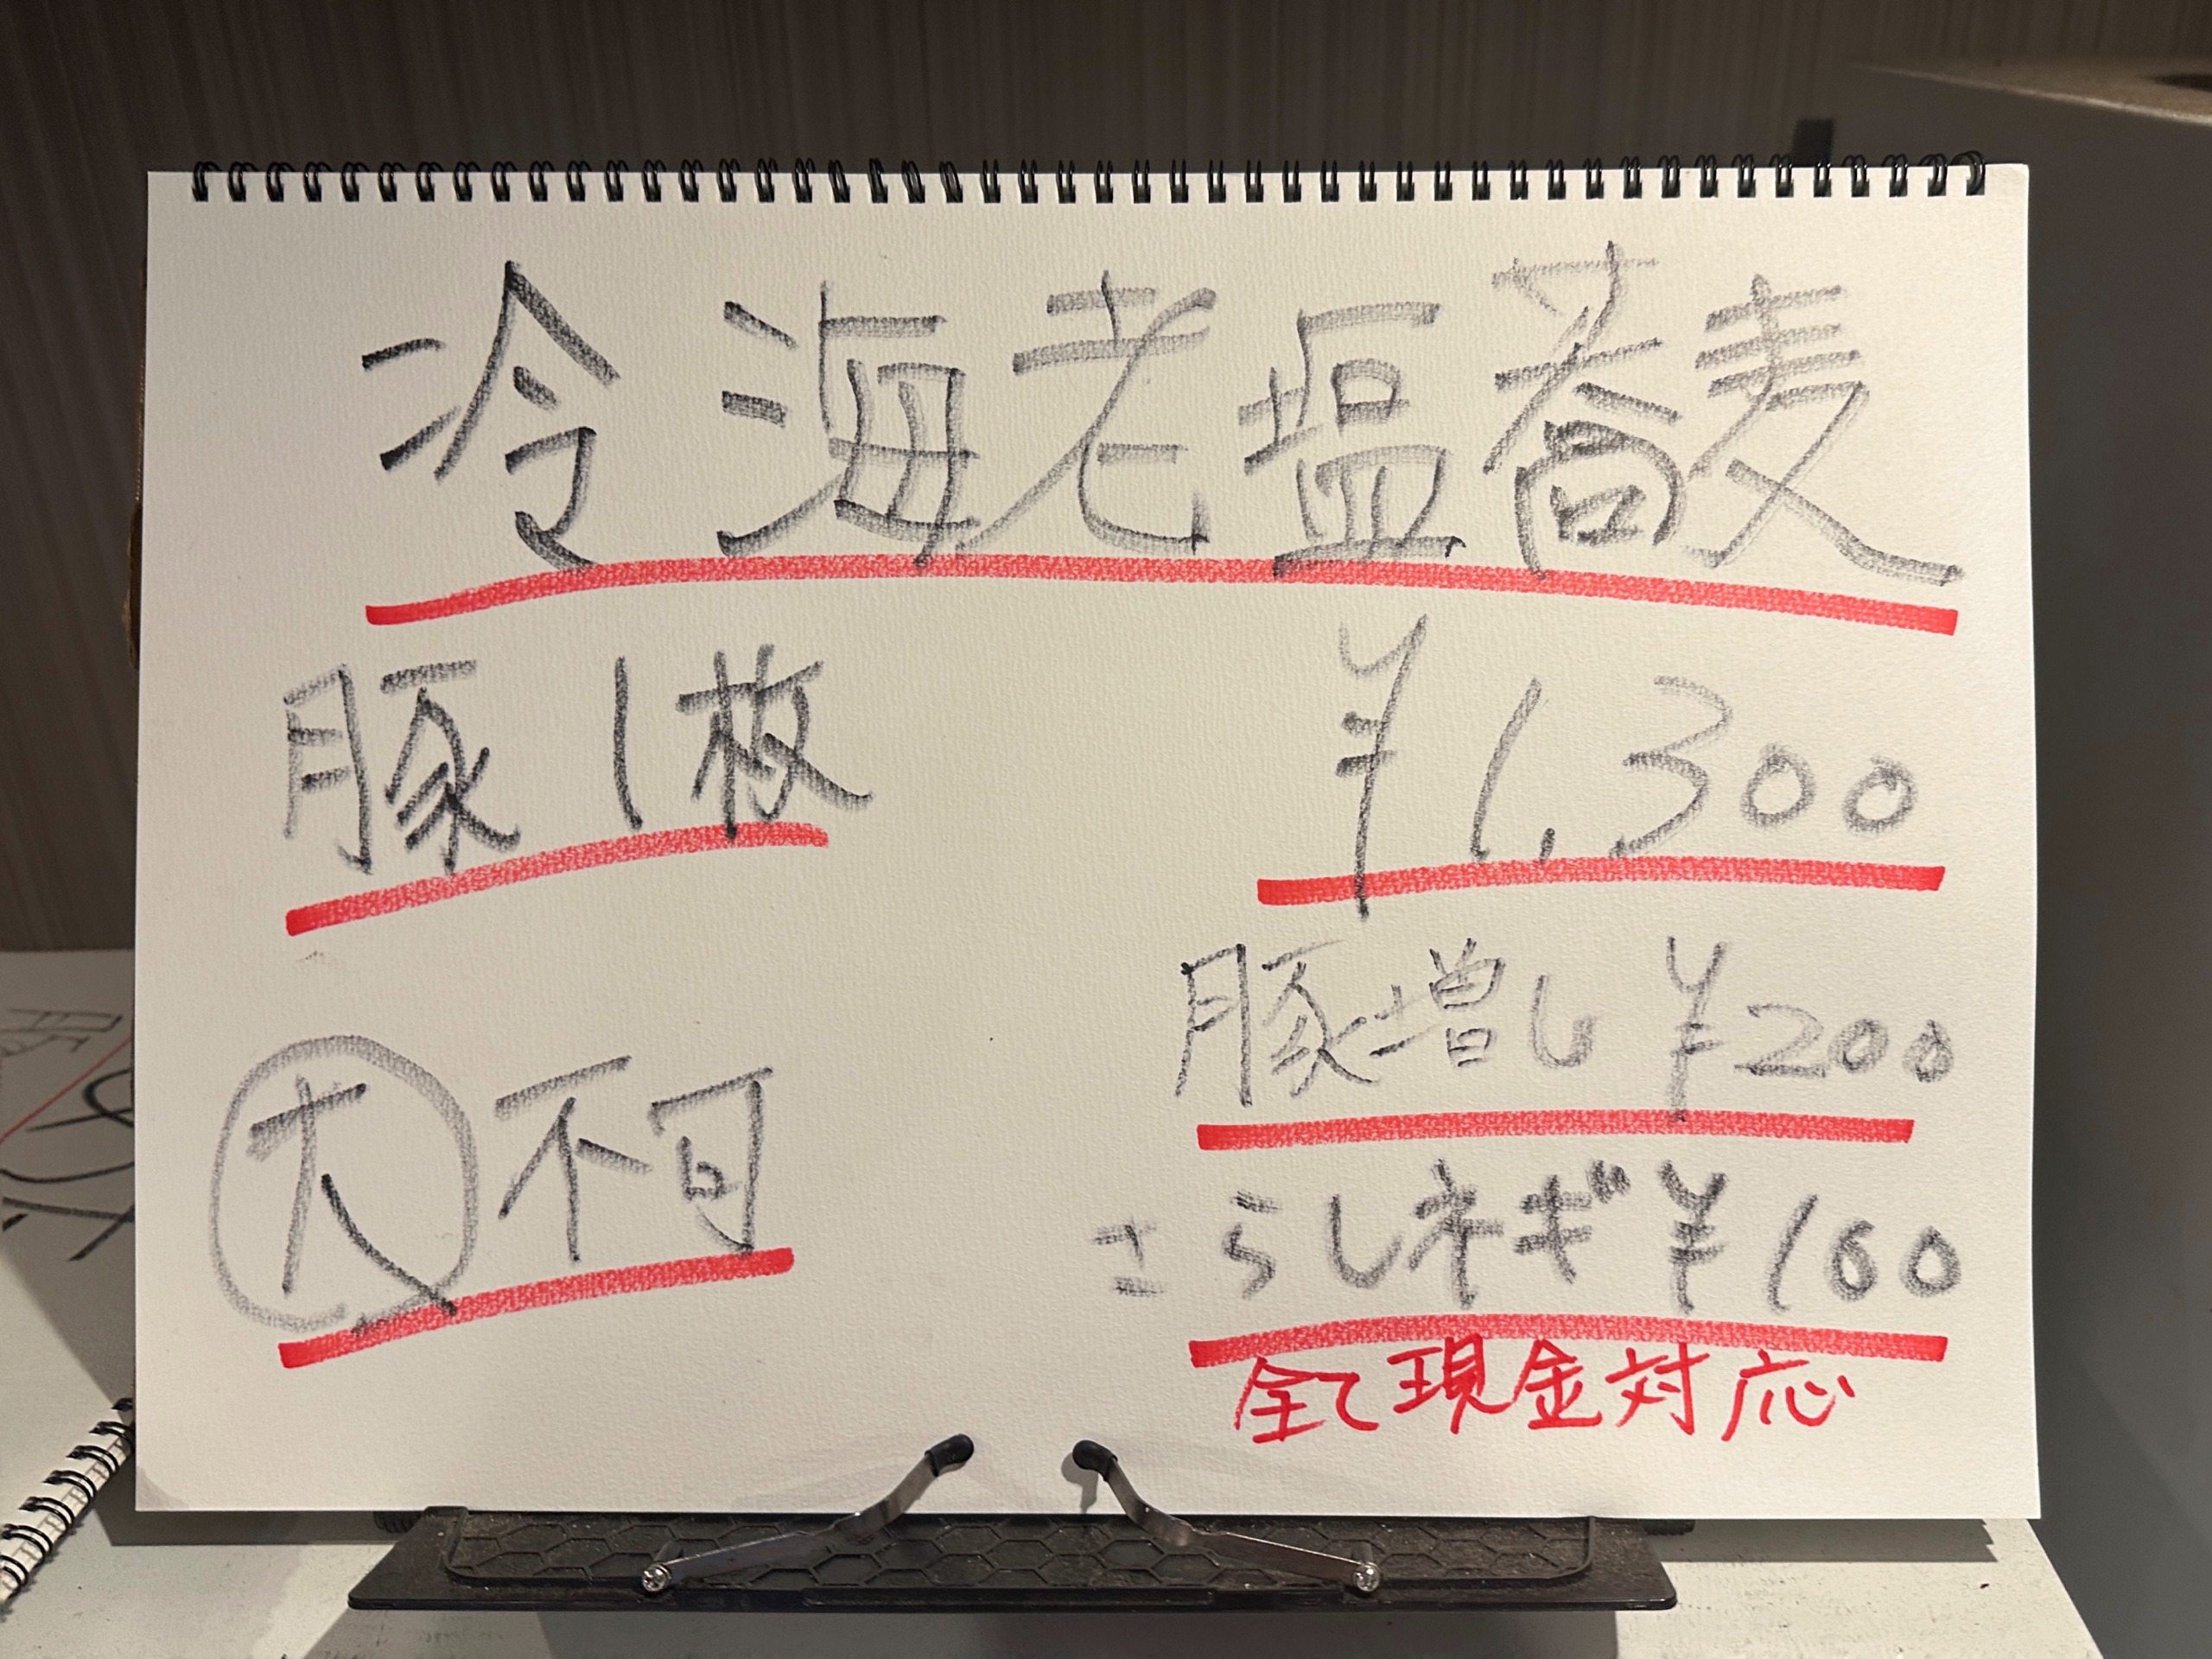 冷海老塩蕎麦
豚1枚
¥1,300
豚増し ¥200
大不可
さらしネギ ¥100
全て現金対応